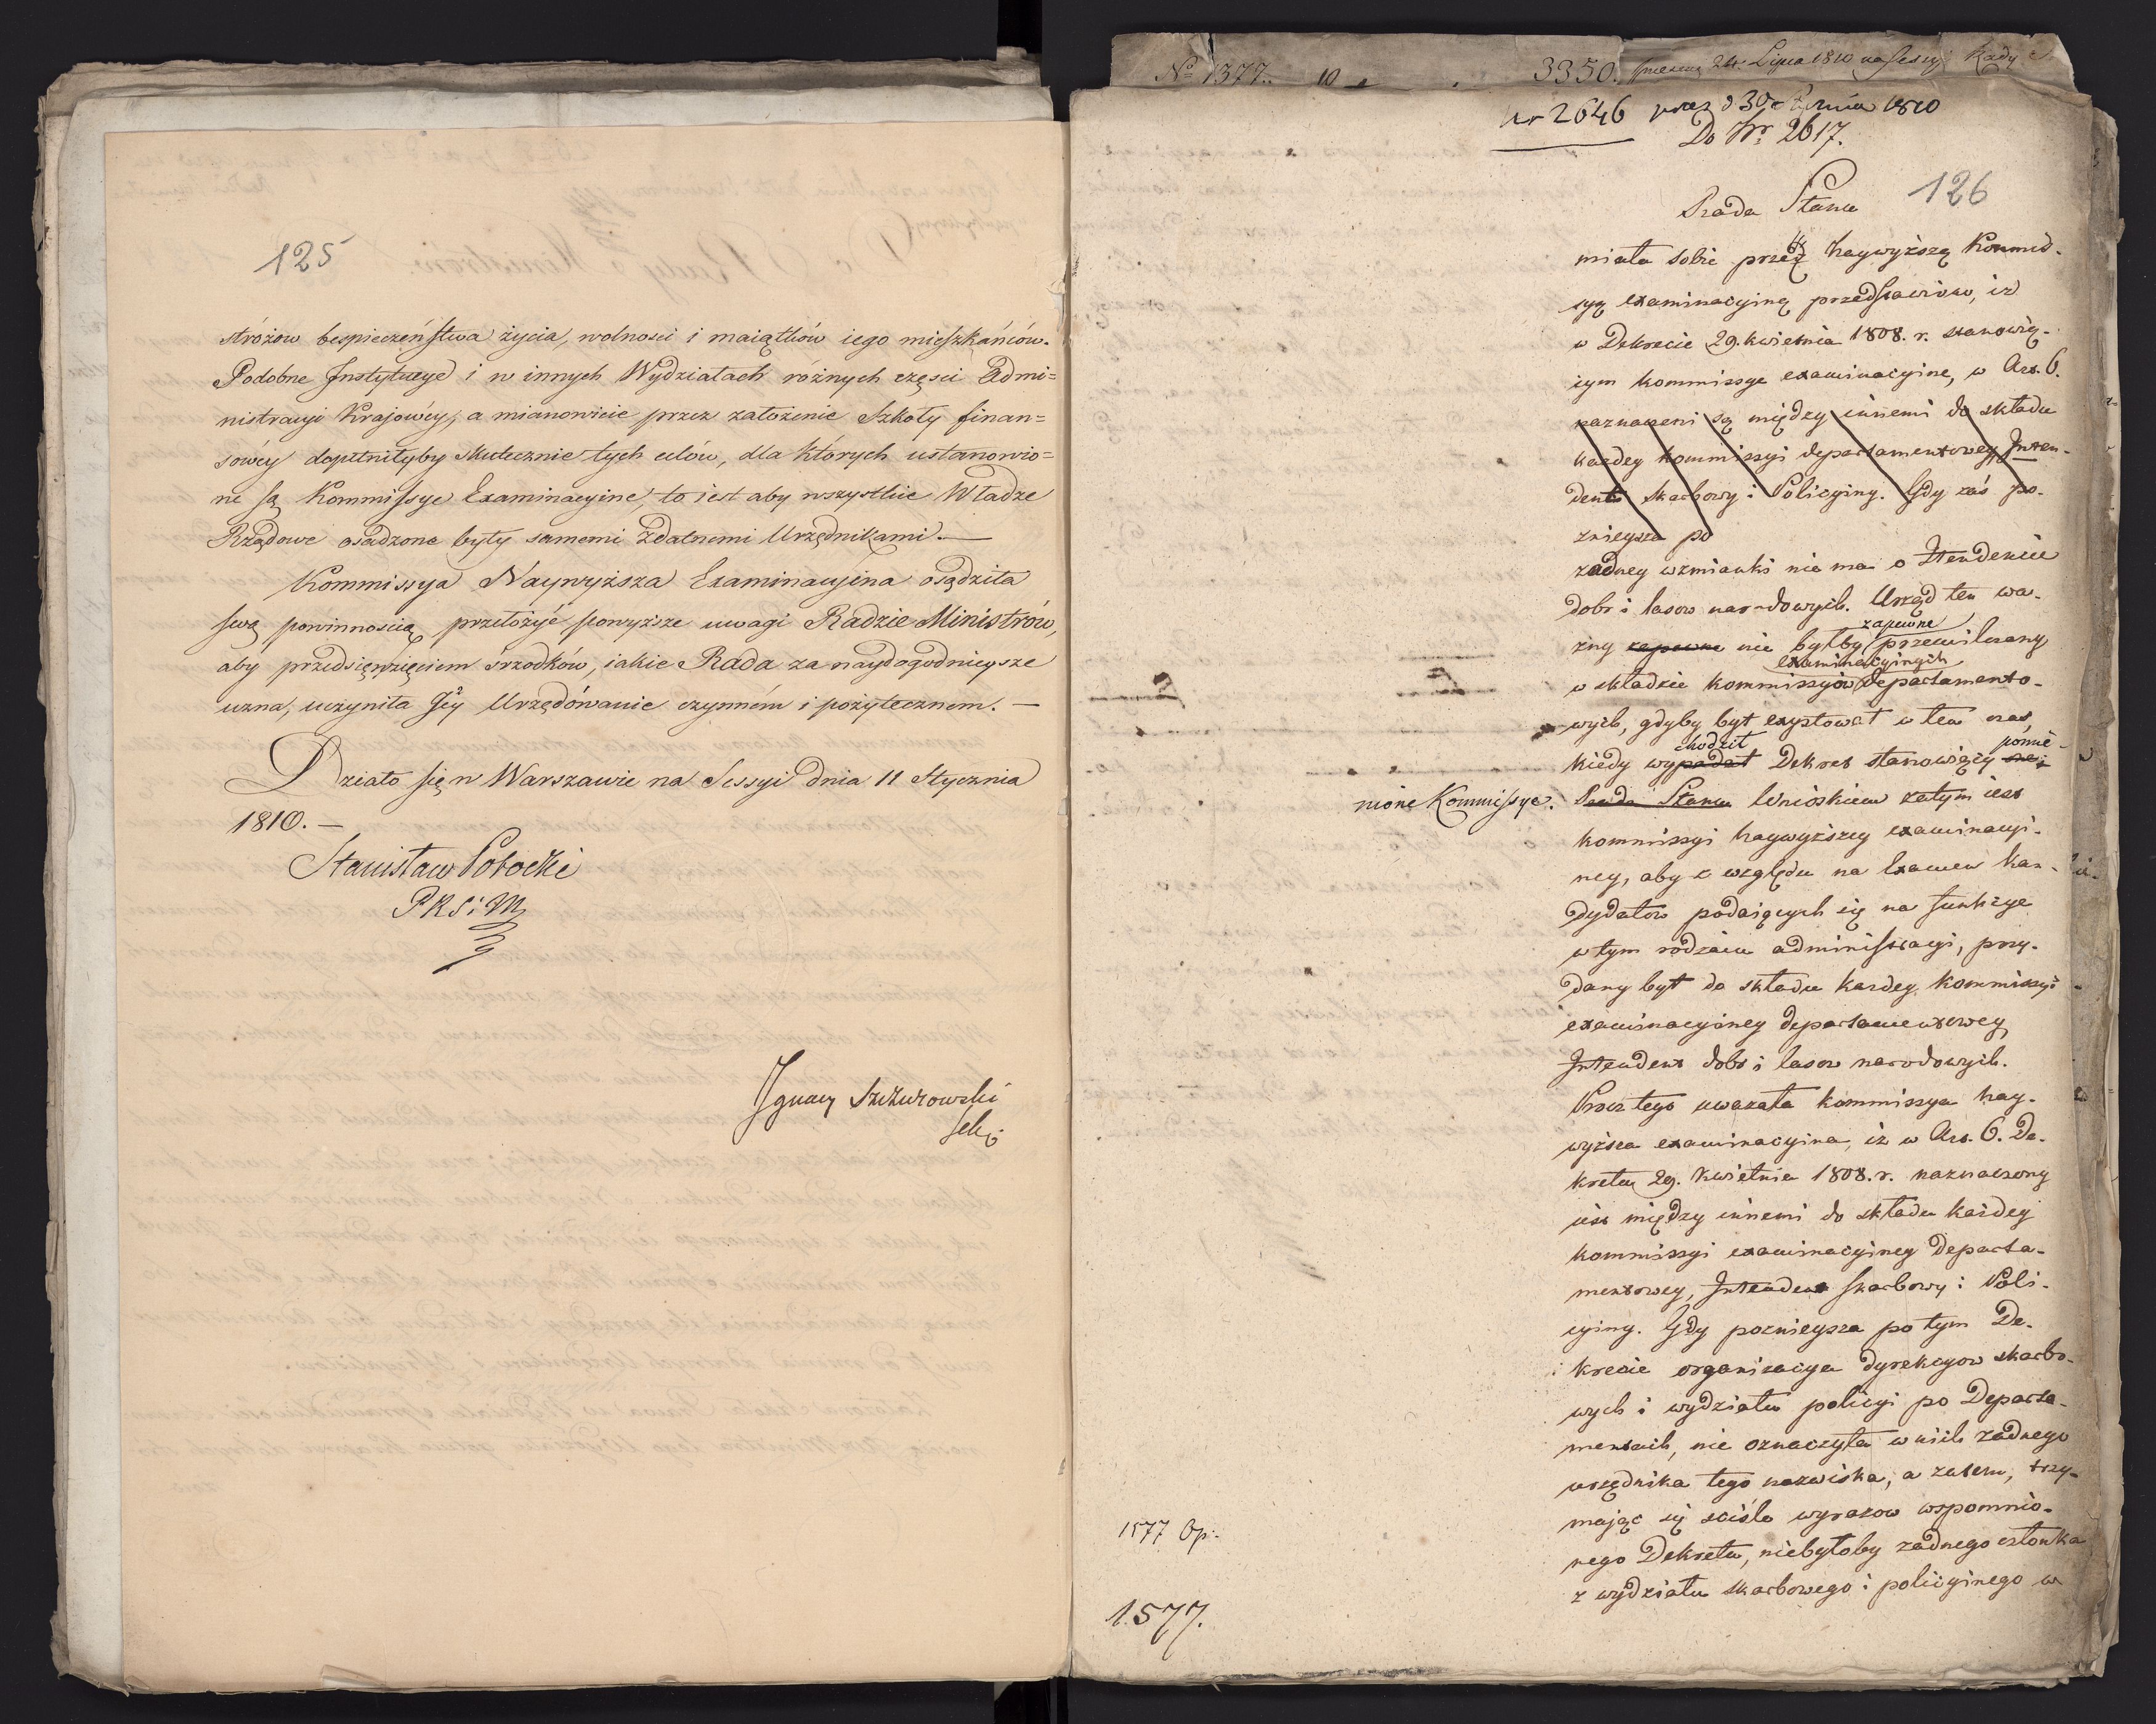 125
stróżow bespieczeństwa życia, wolnosci i maiątków iego mieszkańców.
Podobne Instytucye i w innych Wydziałach różnych części Admi=
nistracyi Krajowéy, a mianowicie przez założenie Szkoły finan=
sówéy dopełniłyby skutecznie tych celów, dla których ustanowio=
ne są Kommissye Examinacyine, to iest aby wszystkie Władze
Rządowe osadzone były samemi zdatnemi Urzędnikami.—
Kommissya Naywyższa Examinacyina osądziła
swą powinnością przełóżyć powyższe uwagi Radzie Ministrów,
aby przedsięwzięciem śrzodków, iakie Rada za naydogodnieysze
uzna, uczyniła Jéy Urzędówanie czynném i pożytecznem.—
Działo się w Warszawie na Sessyi dnia 11 Stycznia
1810.—
Stanisław Potocki
P R S i M
Ignacy Szczurowski
Sek:
No 1377. 10
3350. 24. Lipca 1810 na Sessyi Rady
Nr 2646 1810
Do Nr 2617.
126
Rada Stanu
miała sobie przez naywyższą Kommis-
syą examinacyiną przedstawiono, iż
w Dekrecie 29. kwietnia 1808. r. stanowią-
cym kommissye examinacyine, w Art. 6.
naznaczeni są między innemi do składu
każdey kommissyi departamentowey Inten-
denci skarbowy i Policyiny. Gdy zaś po-
znieysza po
żadney wzmianki nie ma o Itendencie
dobr i lasow narodowych. Urząd ten wa-
zapewne
żny zapewne nie byłby przemilczany
examinacyinych
w składzie kommissyów departamento-
wych, gdyby był exystował w ten czas,
chodził pomie-
kiedy wypadał Dekret stanowiący
nione Kommissye. Rada Stanu Wnioskiem zatym iest
kommissyi naywyższey examinacyi-
ney, aby z względu na Examen kan-
dydatow podaiących się na funkcye
w tym rodzaiu administracyi, przy-
dany był do składu każdey kommissyi
examinacyiney departamentowey
Intendent dobr i lasow narodowych.
Procz tego uważała kommissya nay-
wyższa examinacyina, iż w Art. 6. De-
kretu 29. kwietnia 1808. r. naznaczony
iest między innemi do składu każdey
kommissyi examinacyiney Departa-
mentowey, Intendent skarbowy i Poli-
cyiny. Gdy poznieysza po tym De-
krecie organizacya dyrekcyow skarbo-
wych i wydziału policyi po Departa-
mentach, nie oznaczyła w nich żadnego
urzędnika tego nazwiska, a zatem, trzy-
mając się sciśle wyrazow wspomnio-
nego Dekretu, niebyłoby żadnego członka
z wydziału skarbowego i policyinego w
1577 Op:
1577.